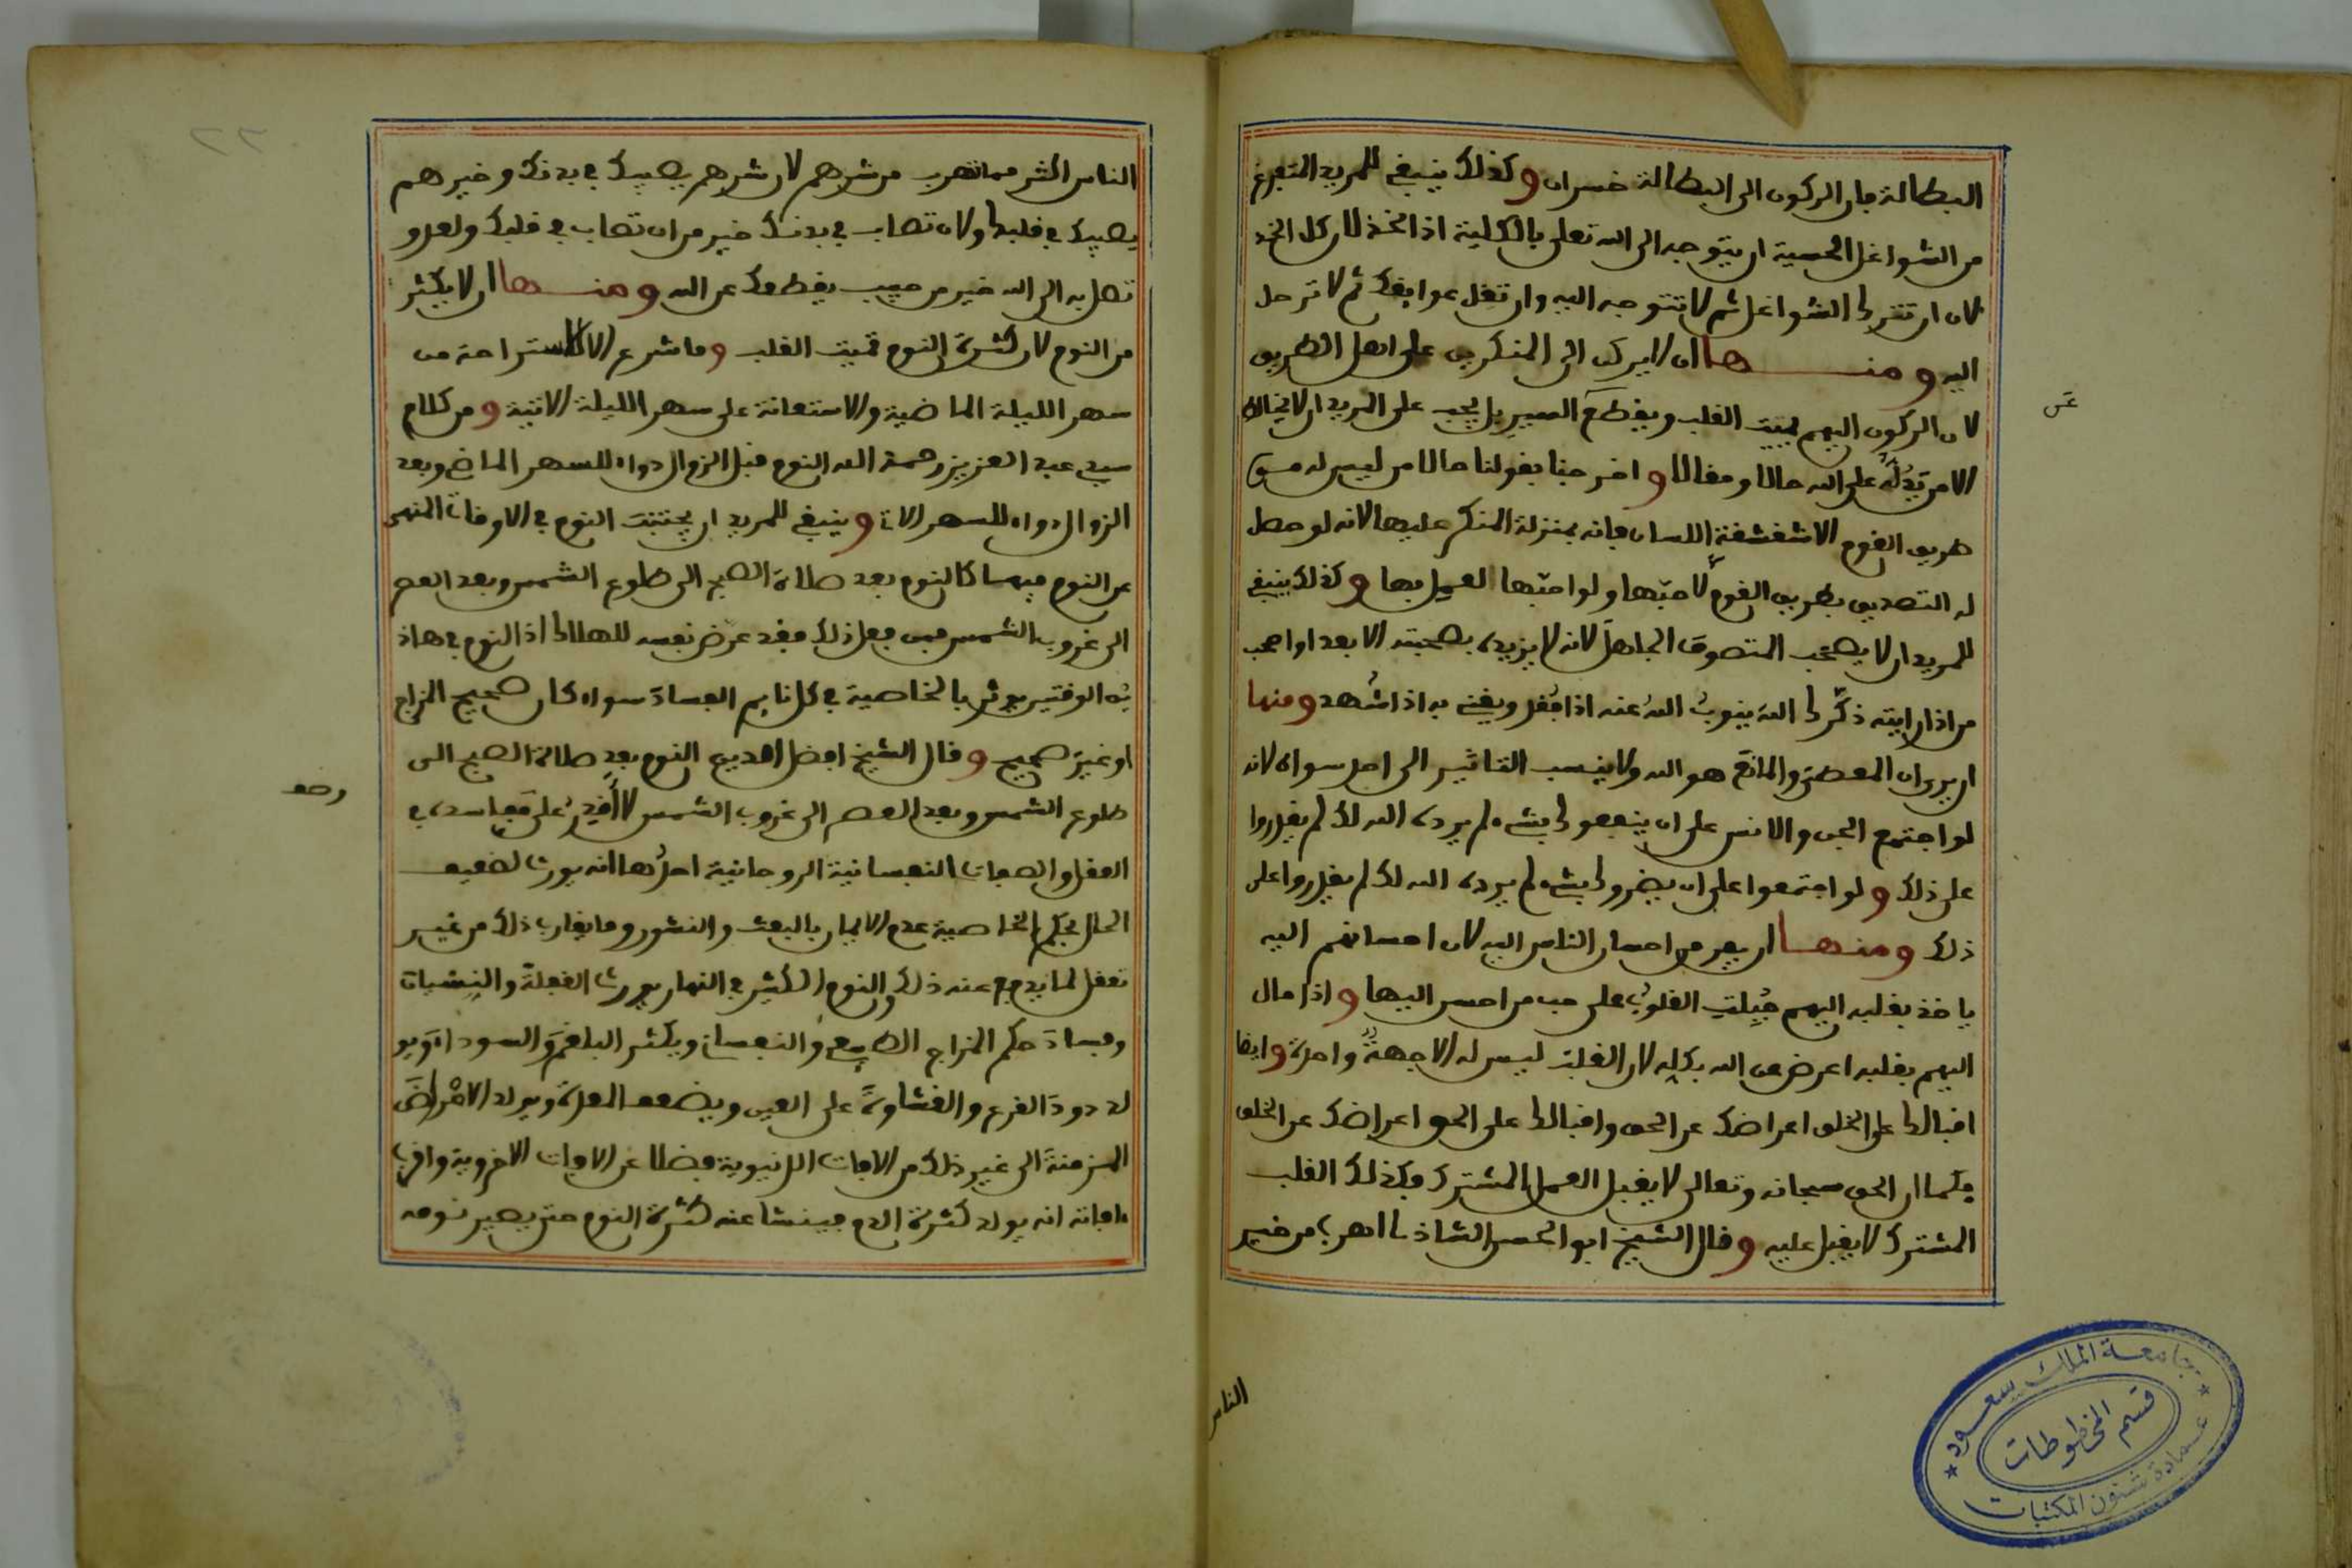 البطالة فان الركون الى البطالة خسران وكذلك ينبغي للمريد المتفرغ
من الشواغل الحسية ان يتوجه الى الله تعلى بالكلية اذا
لان ان تترك الشواغل ثم لا تتوجه اليه وان تقل عوايقك ثم لا ترحل
اليه ومنها ان لا يركن الى المنكرين على اهل الطريق
لان الركون اليهم يميت القلب ويقطع السير بل يجب على المريد ان لا يخالط
الا من يدله على الله حالا ومقالا واخرجنا بقولنا حالا من ليس له من
طريق القوم الا شقشقة اللسان فانه بمنزلة المنكر عليها لانه لو حصل
له التصديق بطريق القوم لاحبها ولو احبها لعمل بها وكذلك ينبغي
للمريد ان لا يصحب المتصوف الجاهل لانه لا يزيده بصحبته الا بعدا واصحب
من اذا رايته ذكرك الله ينوب الله عنه اذا فقد ويغني به اذا شهد ومنها
ان يرى ان المعطي والمانع هو الله ولا ينسب التاثير الى احد سواه لانه
لو اجتمع الجن والانس على ان ينفعوك بشيء لم يرده الله لك لم يقدروا
على ذلك ولو اجتمعوا على ان يضروك بشيء لم يرده الله لك لم يقدروا على
ذلك ومنها ان يفر من احسان الناس اليه لان احسانهم اليه
ياخذ بقلبه اليهم جبلت القلوب على حب من احسن اليها واذا مال
اليهم بقلبه اعرض عن الله بكله لان القلب ليس له الا جهة واحدة وايضا
اقبالك على الخلق اعراضك عن الحق واقبالك على الحق اعراضك عن الخلق
فكما ان الحق سبحانه وتعالى لا يقبل العمل المشترك وكذلك القلب
المشترك لا يقبل عليه وقال الشيخ ابو الحسن الشاذلي اهرب من خير
الناس
عن
الناس اكثر مما تهرب من شرهم لان شرهم يصيبك في بدنك وخيرهم
يصيبك في قلبك ولان تصاب في بدنك خير من ان تصاب في قلبك ولعدو
تصل به الى الله خير من حبيب يقطعك عن الله ومنها ان لا يكثر
من النوم لان كثرة النوم تميت القلب وما شرع الا للاستراحة من
سهر الليلة الماضية والاستعانة على سهر الليلة الاتية ومن كلام
سيدي عبد العزيز رحمة الله النوم قبل الزوال دواء للسهر الماضي وبعد
الزوال دواء للسهر الات وينبغي للمريد ان يجتنب النوم في الاوقات المنهي
عن النوم فيها كالنوم بعد صلاة الصبح الى طلوع الشمس وبعد العصر
الى غروب الشمس فمن فعل ذلك فقد عرض نفسه للهلاك اذ النوم في هاذ
يْن الوقتين يورث بالخاصية في كل نايم الفساد سواء كان صحيح المزاج
او غير صحيح وقال الشيخ افضل الدين النوم بعد صلاة الصبح الى
طلوع الشمس وبعد العصر الى غروب الشمس لا اقدر على مفاسده في
العقل والصفات النفسانية الروحانية احدها انه يورث لضعيف
الحال بحكم الخاصية عدم الايمان بالبعث والنشور وما يقارب ذلك من غير
تعقل لما يدفع عنه ذلك والنوم الكثير في النهار يورث الغفلة والنسيان
وفساد حكم المزاج الطبيعي والنفساني ويكثر البلغم والسوداء ويو
لد دود القرع والغشاوة على العين ويضعف المعدة ويولد الامراض
المزمنة الى غير ذلك من الافات الدنيوية فضلا عن الافات الاخروية واقرب
افاته انه يولد كثرة الدم فينشا عنه كثرة النوم حتى يصير نومه
جامعة الملك سعود
قسم المخطوطات
عمادة شئون المكتبات